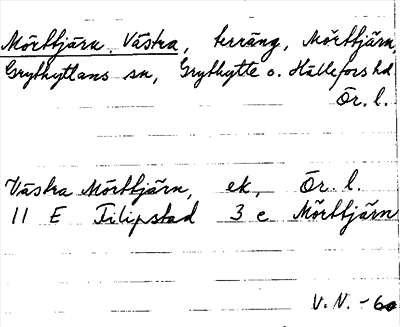 Mörttjärn, Västra, terräng, Mörttjärn,
Grythyttans sn, Grythytte o. Hällefors hd
Ör. l.
Västra Mörttjärn, ek, Ör. l.
11 E Filipstad 3 e Mörttjärn
V. N. -60